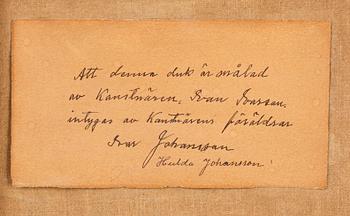 Att denna duk är målad
av Konstnären, Ivan Ivarson,
intygas av Konstnärens föräldrar
Ivar Johansson
Hulda Johansson